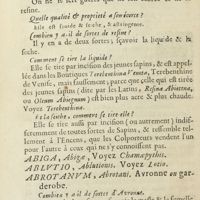 resine.
Quelle qualité & proprieté a son écorce?
Elle est froide & seche, & astringente.
Combien y a-il de sortes de resine?
Il y en a de deux sortes; sçavoir la liquide & la
seche.
Comment se tire la liquide?
Elle se tire par incision des jeunes sapins, & est appel-
lée dans les Boutiques Terebenthina Veneta, Terebenthine
de Venise, mais faussement; parce que celle qui est tirée
des jeunes sapins (dite par les Latins, Resina Abietina,
ou Oleum Abiegnum) est bien plus acre & plus chaude.
Voyez Terebenthine.
Et la seche, comment se tire-elle?
Elle se tire aussi par incision (ou autrement) indiffe-
remment de toutes sortes de Sapins, & ressemble tel-
lement à l'Encens, que les Colporteurs vendent l'un
pour l'autre à ceux qui ne s'y connoissent pas.
ABIGA, Abige, Voyez Chamæpythis.
ABLUTIO, Ablution, Voyez Lotio.
ABROTANUM, Abrotani, Avronne ou gar-
derobe.
Combien y a-il de sortes d'Avronne.